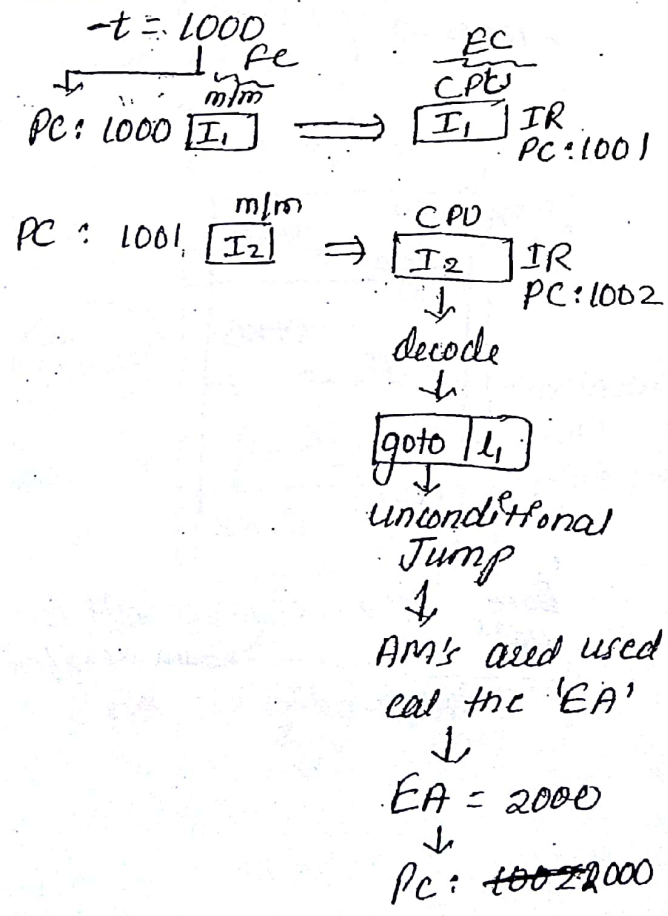 -t = 1000
FC
m/m
PC: 1000 I₁ ⟹ I₁ IR
EC
CPU
PC: 1001
m/m
PC : 1001, I₂ ⇒ I₂ IR
CPU
PC: 1002
↓
decode
↓
goto | l₁
↓
unconditional
Jump
↓
AM's ared used
cal the 'EA'
↓
EA = 2000
↓
PC: 1002 2000